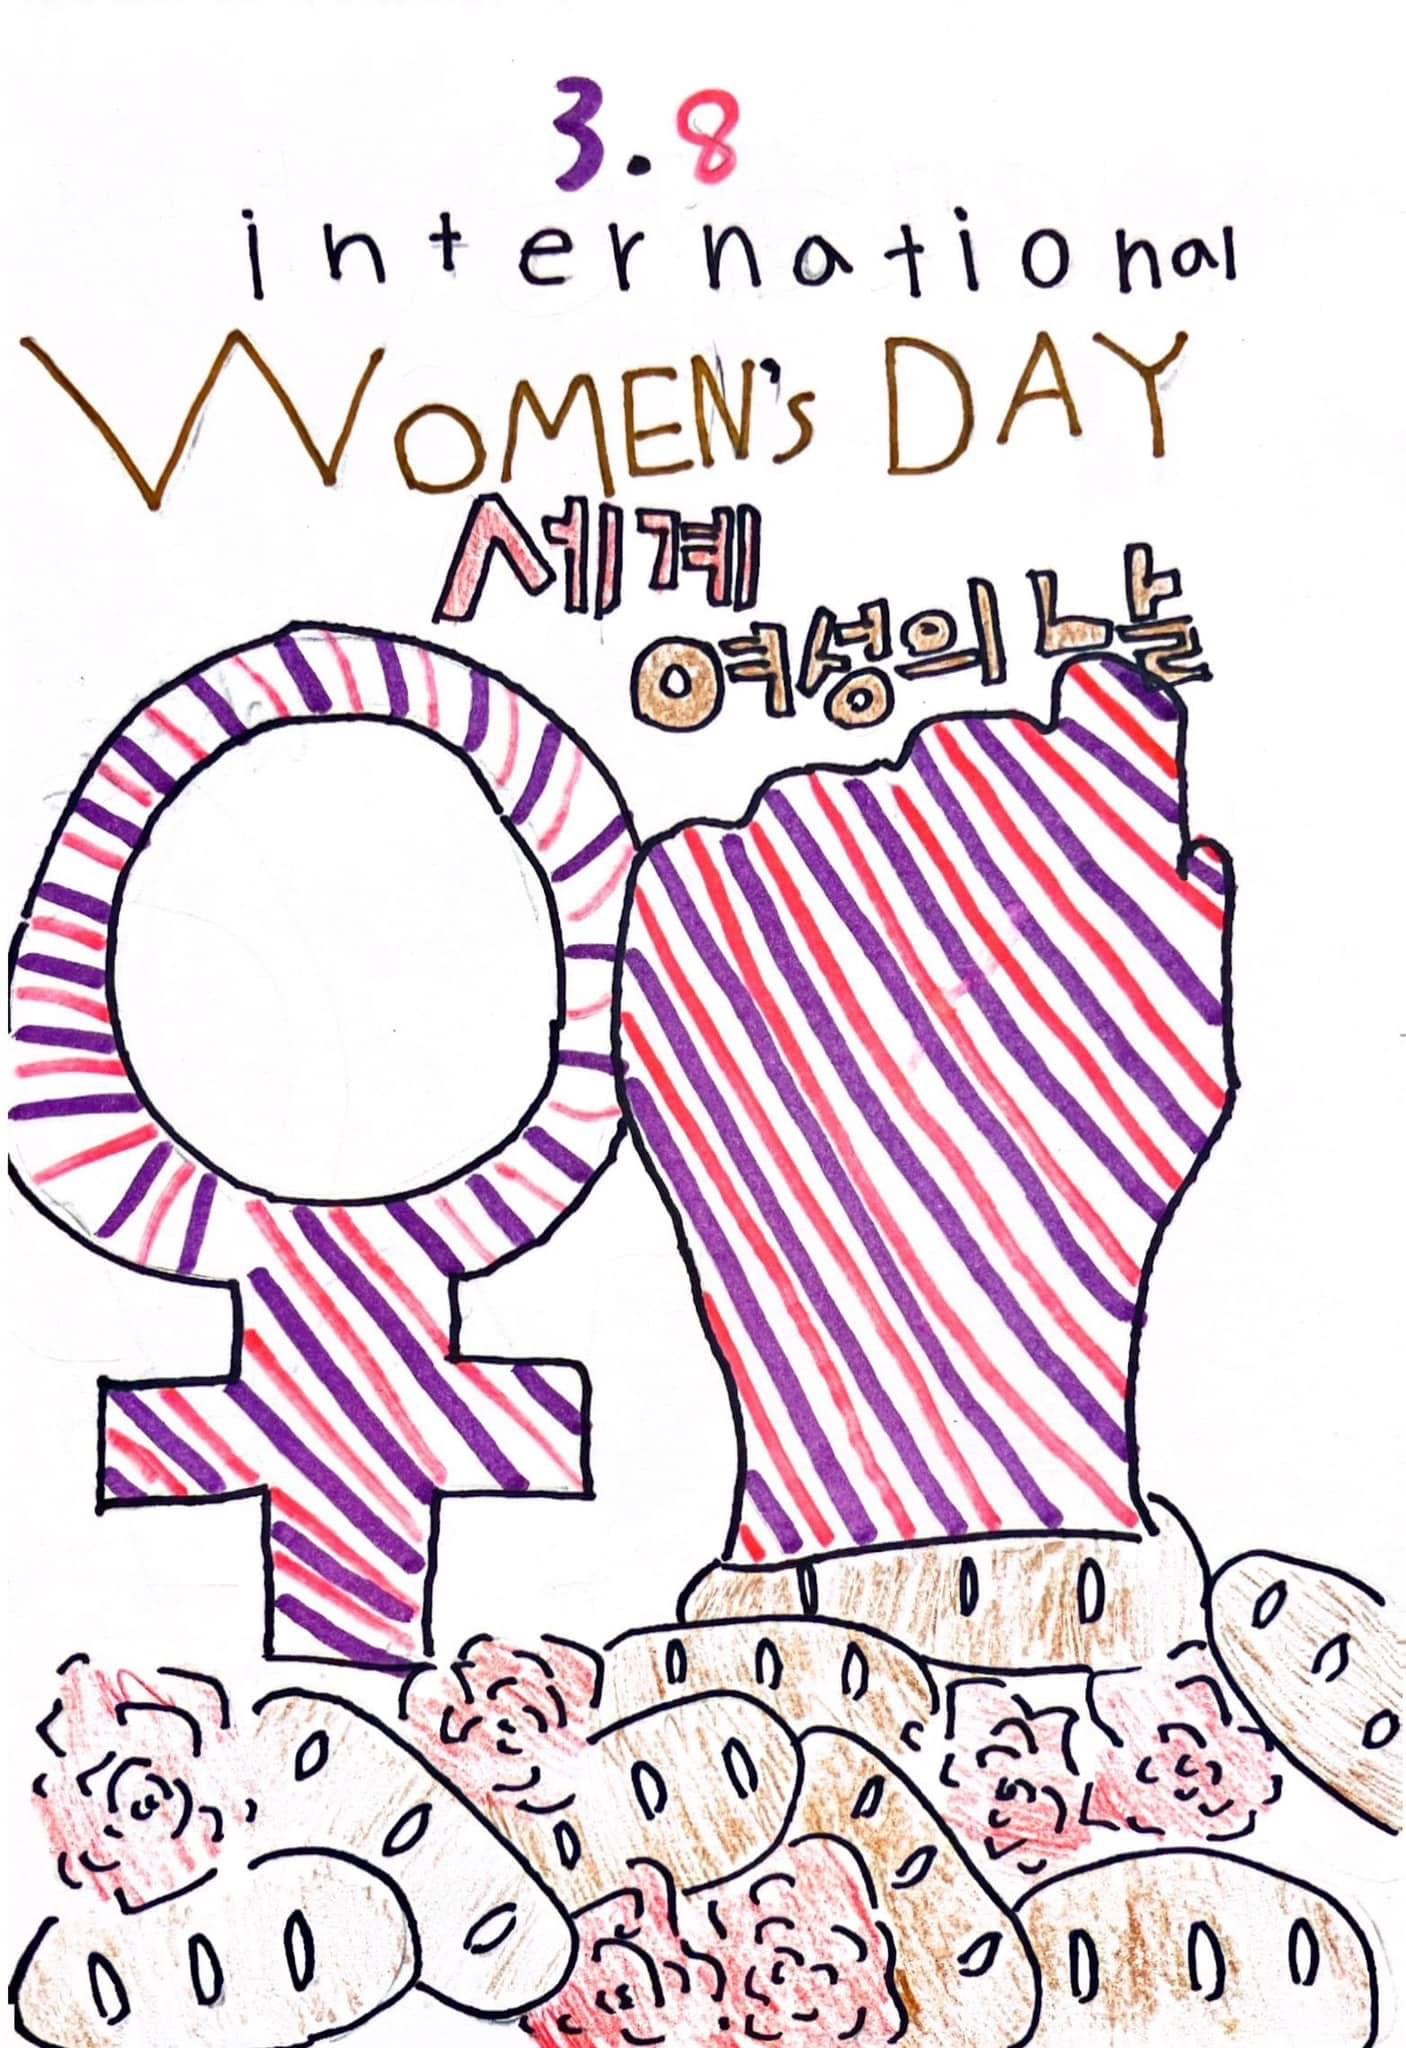 3.8
international
WOMEN's DAY
세계
여성의 날